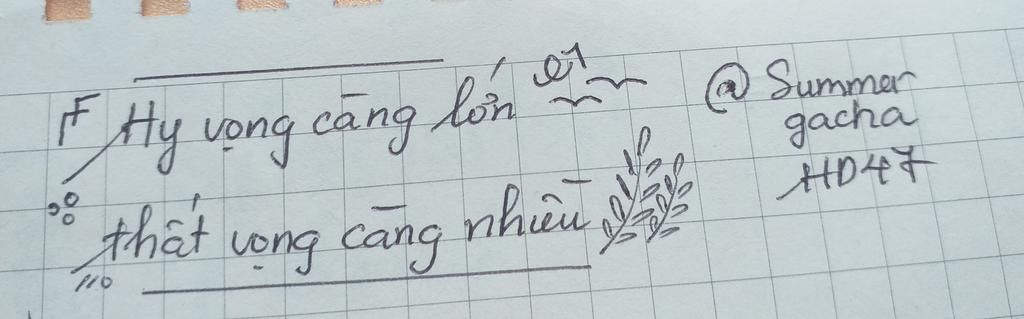 Hy vọng càng lớn
thất vọng càng nhiều
@ Summer
gacha
HD47